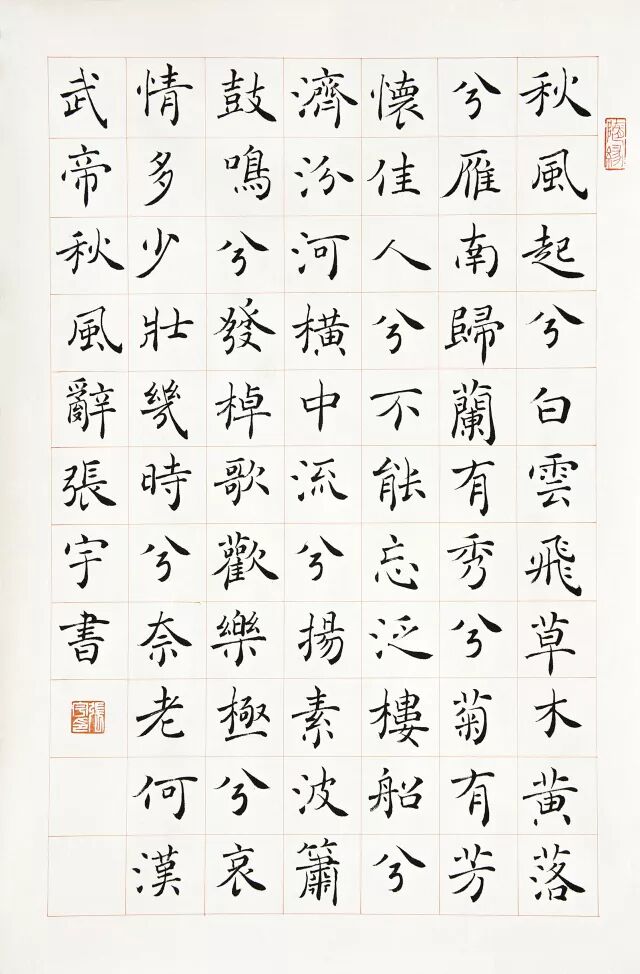 秋風起兮白雲飛草木黃落
兮雁南歸蘭有秀兮菊有芳
懷佳人兮不能忘泛樓船兮
濟汾河橫中流兮揚素波簫
鼓鳴兮發棹歌歡樂極兮哀
情多少壯幾時兮奈老何漢
武帝秋風辭張宇書
張宇印